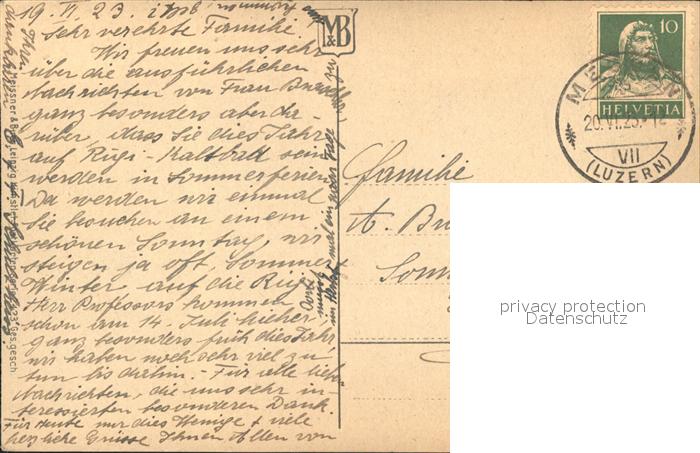 19. VI. 23.
Sehr verehrte Familie.
Wir freuen uns sehr
über die ausführlichen
Nachrichten von Frau
ganz besonders aber da-
rüber, dass Sie dies Jahr
auf Rigi-Kaltbad sein
werden in Sommerferien
Da werden wir einmal
Sie besuchen an einem
schönen Sonntag, wir
steigen ja oft, Sommer +
Winter auf die Rigi
Herr Professors kommen
schon am 14. Juli hieher,
ganz besonders früh dies Jahr
wir haben noch sehr viel zu
tun bis dahin. - Für alle lieben
Nachrichten, die uns sehr in-
teressierten besonderen Dank.
Für heute nur dies Wenige + viele
herzliche Grüsse Ihnen Allen von
Ihren
dankbaren
M&B
Familie
A.
10
HELVETIA
20.VI.23.
VII
(LUZERN)
privacy protection
Datenschutz